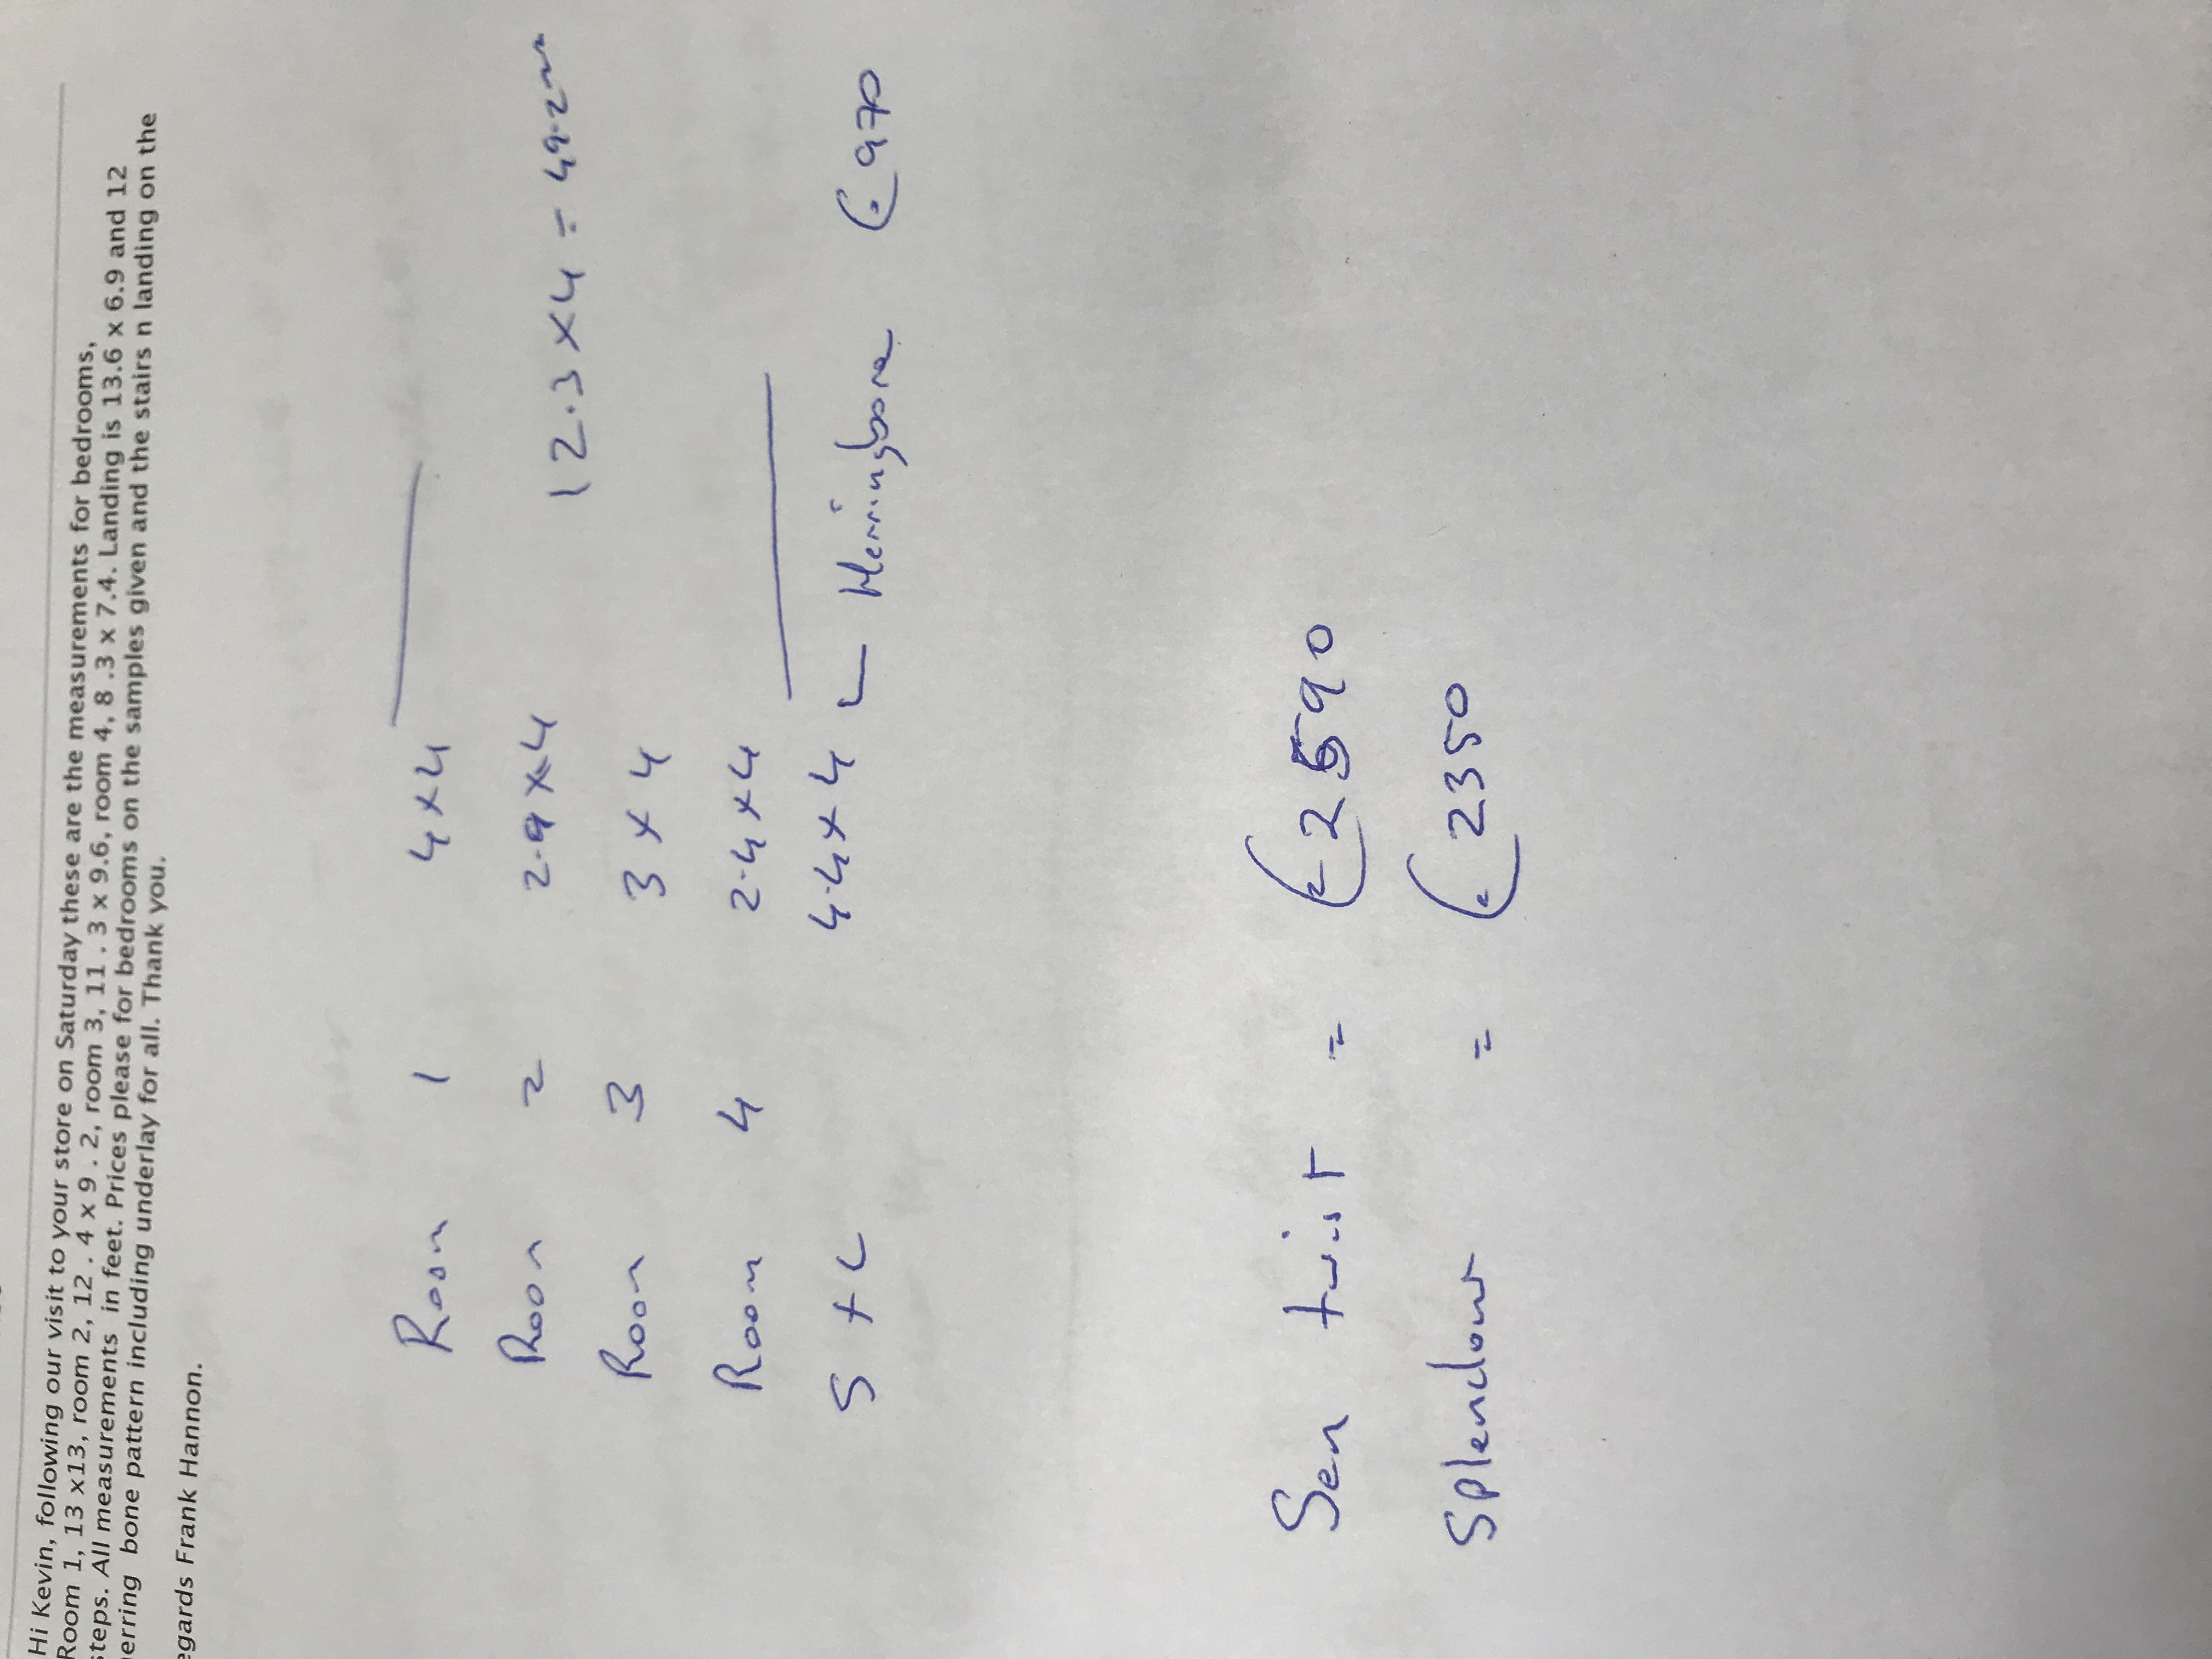 Hi Kevin, following our visit to your store on Saturday these are the measurements for bedrooms,
Room 1, 13 x13, room 2, 12 . 4 x 9 . 2, room 3, 11 . 3 x 9.6, room 4, 8 .3 x 7.4. Landing is 13.6 x 6.9 and 12
steps. All measurements in feet. Prices please for bedrooms on the samples given and the stairs n landing on the
herring bone pattern including underlay for all. Thank you.
egards Frank Hannon.
Room 1 4 x 4
Room 2 2.9 x 4 12.3 x 4 = 49.2m
Room 3 3 x 4
Room 4 2.4 x 4
S + L 4.4 x 4 Herringbone € 970
Sen twist = € 2590
Splendour = € 2350